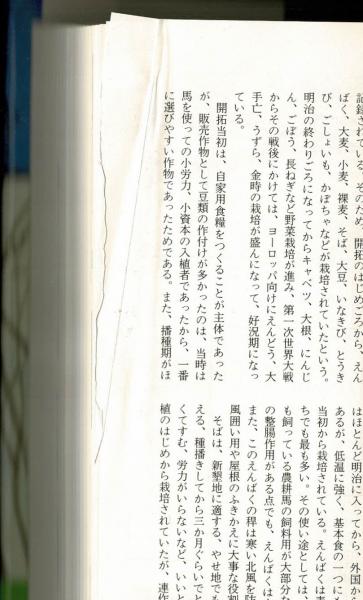 記録されている。そのため、開拓のはじめごろから、えん
ばく、大麦、小麦、裸麦、そば、大豆、いなきび、とうき
び、ごしょいも、かぼちゃなどが栽培されていたという。
明治の終わりごろになってからキャベツ、大根、にんじ
ん、ごぼう、長ねぎなど野菜栽培が進み、第一次世界大戦
からその戦後にかけては、ヨーロッパ向けにえんどう、大
手亡、うずら、金時の栽培が盛んになって、好況期になっ
ている。
開拓当初は、自家用食糧をつくることが主体であった
が、販売作物として豆類の作付けが多かったのは、当時は
馬を使っての小労力、小資本の入植者であったから、一番
に選びやすい作物であったためである。また、播種期がほ
はほとんど明治に入ってから、外国か
あるが、低温に強く、基本食の一つに
当初から栽培されている。えんばくは
ちでも最も多い。その使い途としては、
も飼っている農耕馬の飼料用が大部分
の整腸作用がある点でも、えんばくは
また、このえんばくの稈は寒い北風を防
風囲い用や屋根のふきかえに大事な役割
そばは、新墾地に適する、やせ地でも
える、種播きしてから三か月ぐらいで
くてすむ、労力がいらないなど、いい
植のはじめから栽培されていたが、連作